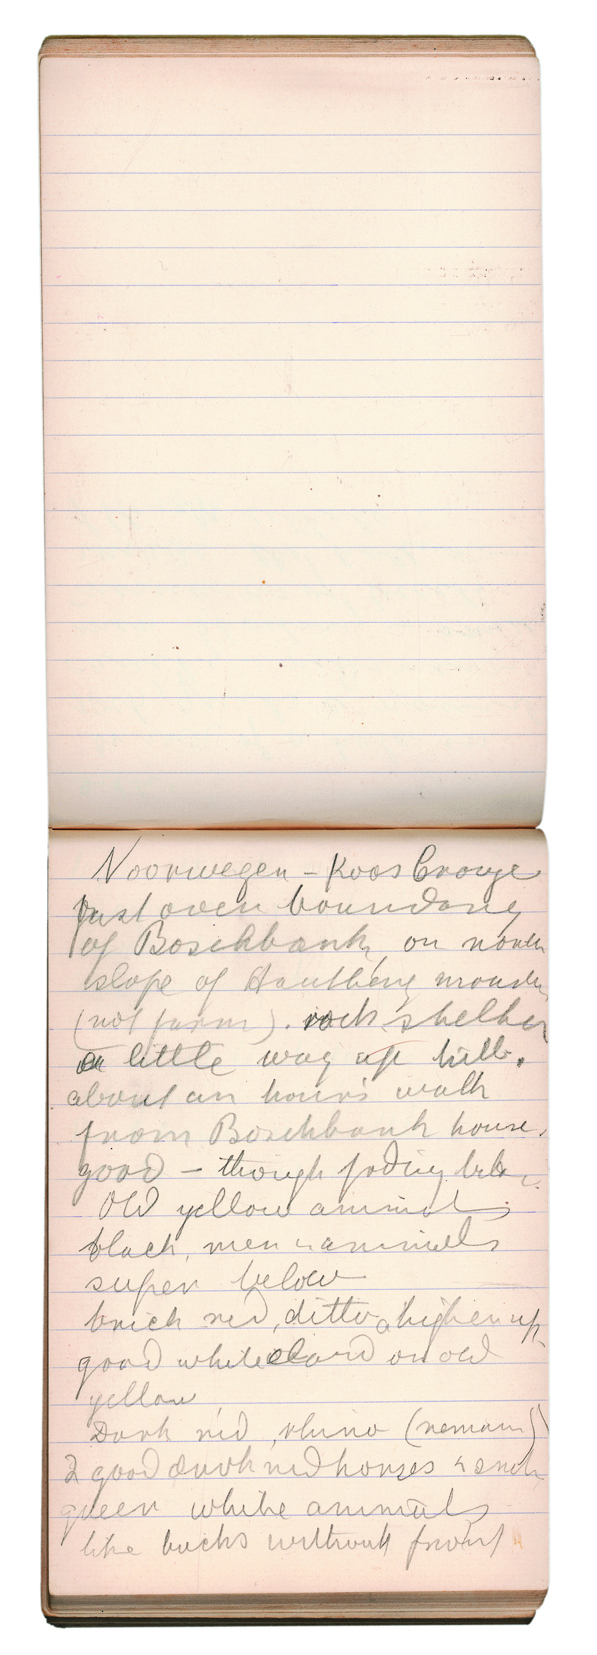 Noorwegen – Koos Cronje
just over boundary
of Boschbank, on north
slope of mount
(not farm). rock shelter
a little way up hill.
about an hour's walk
from Boschbank house.
good – though fading
Old yellow animals
black, men & animals
super below
brick red, ditto, higher up
good white eland on old
yellow
Dark red, rhino (remains)
2 good dark red horses &
queer white animals
like bucks without front